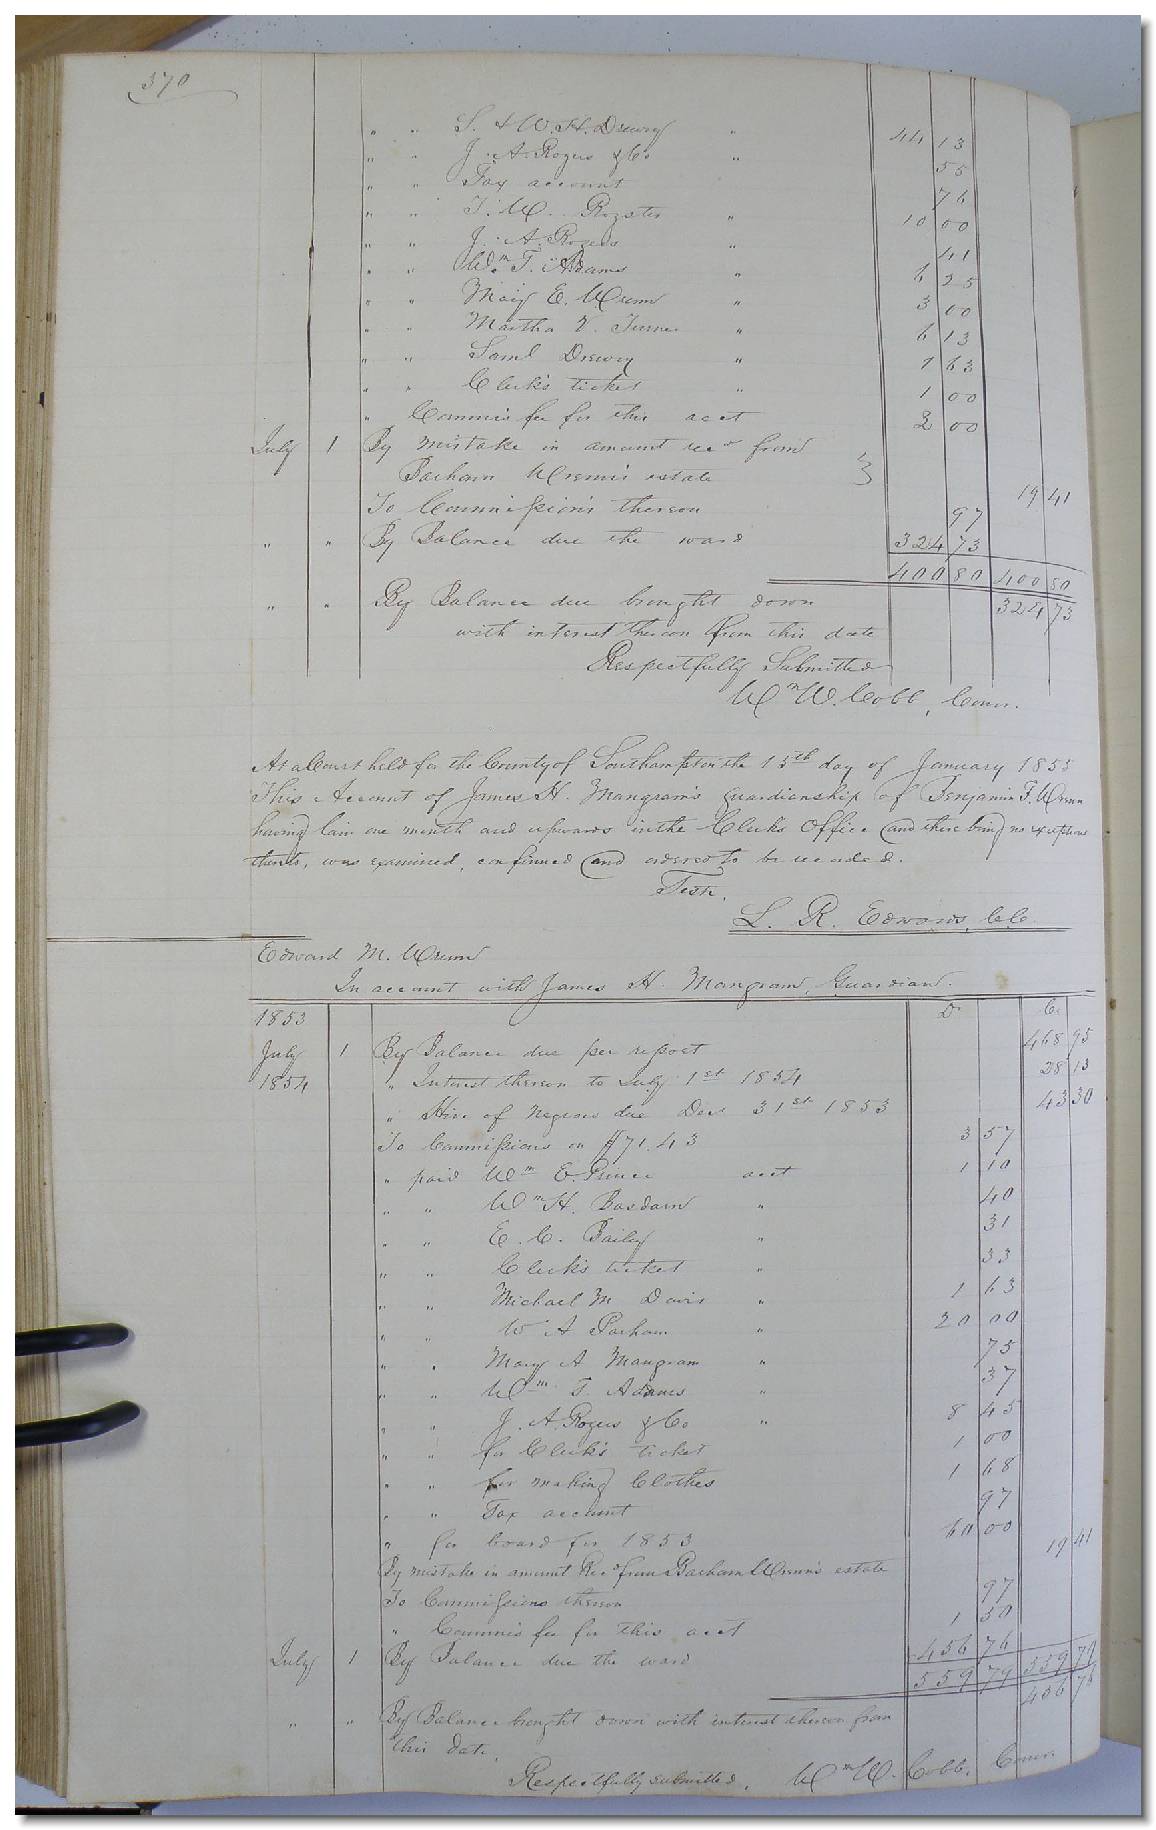 370
" " S. & W. H. Drewry " 44 13
" " J. A. Rogers & Co " 55
" " Tax account 76
" " T. W. Royster " 10 00
" " J. A. Rogers " 41
" " Wm T. Adams " 6 25
" " Mary E. Wrenn " 3 00
" " Martha V. Turner " 6 13
" " Saml Drewry " 1 63
" " Clerk's ticket " 1 00
" Commis fee for this acct 2 00
July 1 By mistake in amount recd from
Barham Wrenn's estate 19 41
To Commissions thereon 97
" " By Balance due the ward 324 73
400 80 400 80
" " By Balance due brought down 324 73
with interest thereon from this date
Respectfully Submitted
Wm W. Cobb, Comr.
At a Court held for the County of Southampton the 15th day of January 1855
This Account of James H. Mangram's guardianship of Benjamin F. Wrenn
having lain one month and upwards in the Clerks Office and there being no exceptions
thereto, was examined, confirmed and ordered to be recorded.
Teste,
L. R. Edwards, C.C.
Edward M. Wrenn
In account with James H. Mangram, Guardian.
1853 Dr Cr
July 1 By Balance due per report 468 95
1854 " Interest thereon to July 1st 1854 28 13
" Hire of Negroes due Decr 31st 1853 43 30
To Commissions on $71.43 3 57
" paid Wm E. Prince acct 1 10
" " Wm H. " 40
" " E. C. Bailey " 31
" " Clerk's ticket " 33
" " Michael M Davis " 1 63
" " W A Parham " 20 00
" " Mary A Mangram " 75
" " Wm T. Adams " 37
" " J. A. Rogers & Co " 8 45
" " for Clerk's ticket 1 00
" " for making Clothes 1 68
" " Tax account 97
" for board for 1853 60 00
By mistake in amount Recd from Barham Wrenn's estate 19 41
To Commissions thereon 97
" Commis fee for this acct 1 50
July 1 By Balance due the ward 456 76
559 79 559 79
" " By Balance brought down with interest thereon from 456 76
this date.
Respectfully submitted, Wm W. Cobb, Comr.